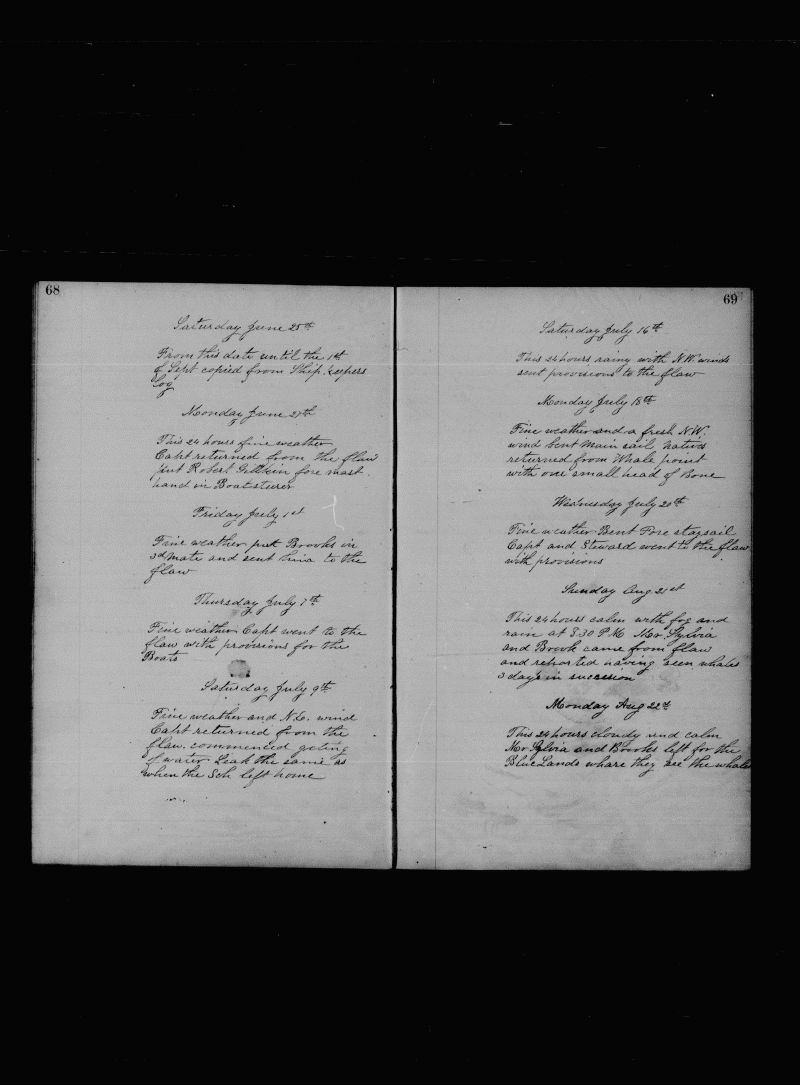 68
Saturday June 25th
From this date until the 1st
of Sept copied from Ship Keepers
log
Monday June 27th
This 24 hours fine weather
Capt returned from the flaw
put Robert fore mast
hand in Boatsteerer
Friday July 1st
Fine weather put Brooks in
3d Mate and sent him to the
flaw
Thursday July 7th
Fine weather Capt went to the
flaw with provisions for the
Boats
Saturday July 9th
Fine weather and N.E. wind
Capt returned from the
flaw. commenced geting
of water Leak the same as
when the Sch left home
69
Saturday July 16th
This 24 hours rainy with N.W. winds
sent provisions to the flaw
Monday July 18th
Fine weather and a fresh N.W.
wind bent Main sail natives
returned from Whale point
with one small head of Bone
Wednesday July 20th
Fine weather Bent Fore staysail
Capt and Steward went to the flaw
with provisions
Sunday Aug 21st
This 24 hours calm with fog and
rain at 3.30 PM Mr. Sylvia
and Brook came from flaw
and reported having seen whales
3 days in succesion
Monday Aug 22th
This 24 hours cloudy and calm
Mr Sylvia and Brooks left for the
Blue Lands whare they see the whales